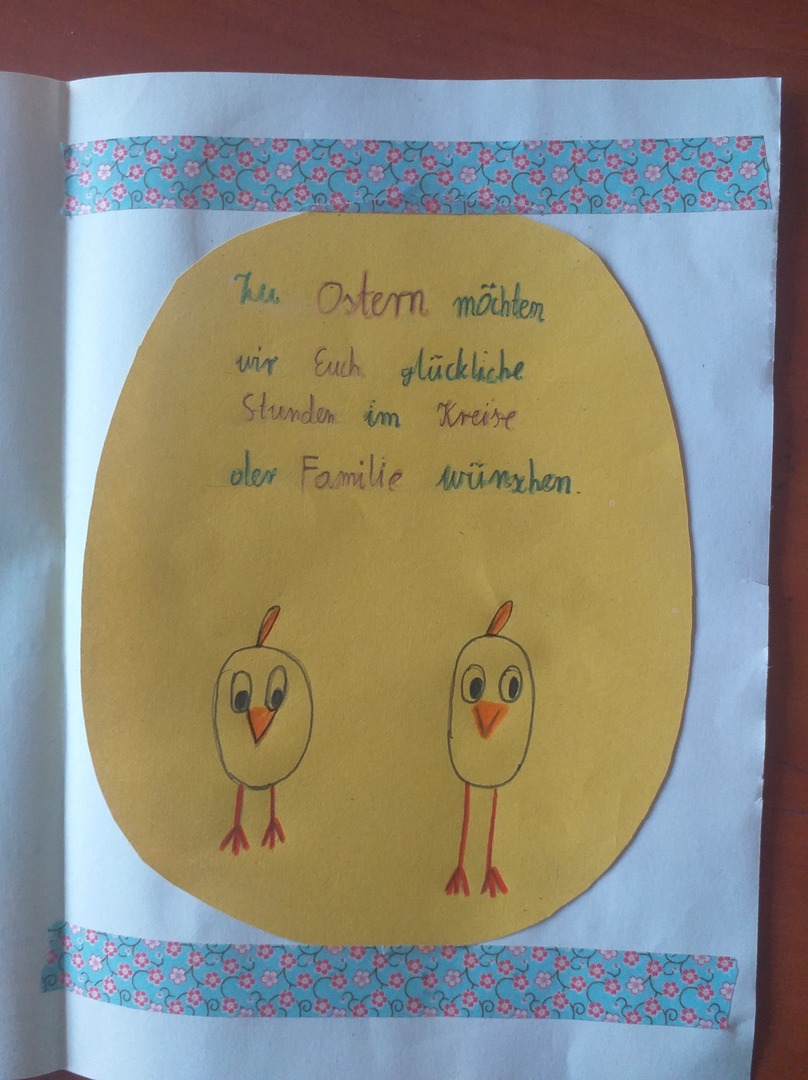 Zu Ostern möchten
wir Euch glückliche
Stunden im Kreise
der Familie wünschen.